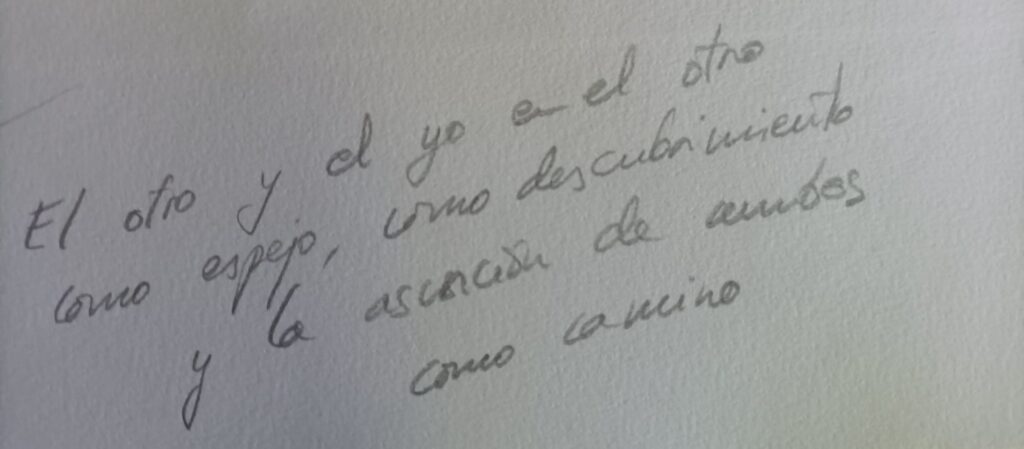 El otro y el yo en el otro
como espejo, como descubrimiento
y la asunción de ambos
como camino